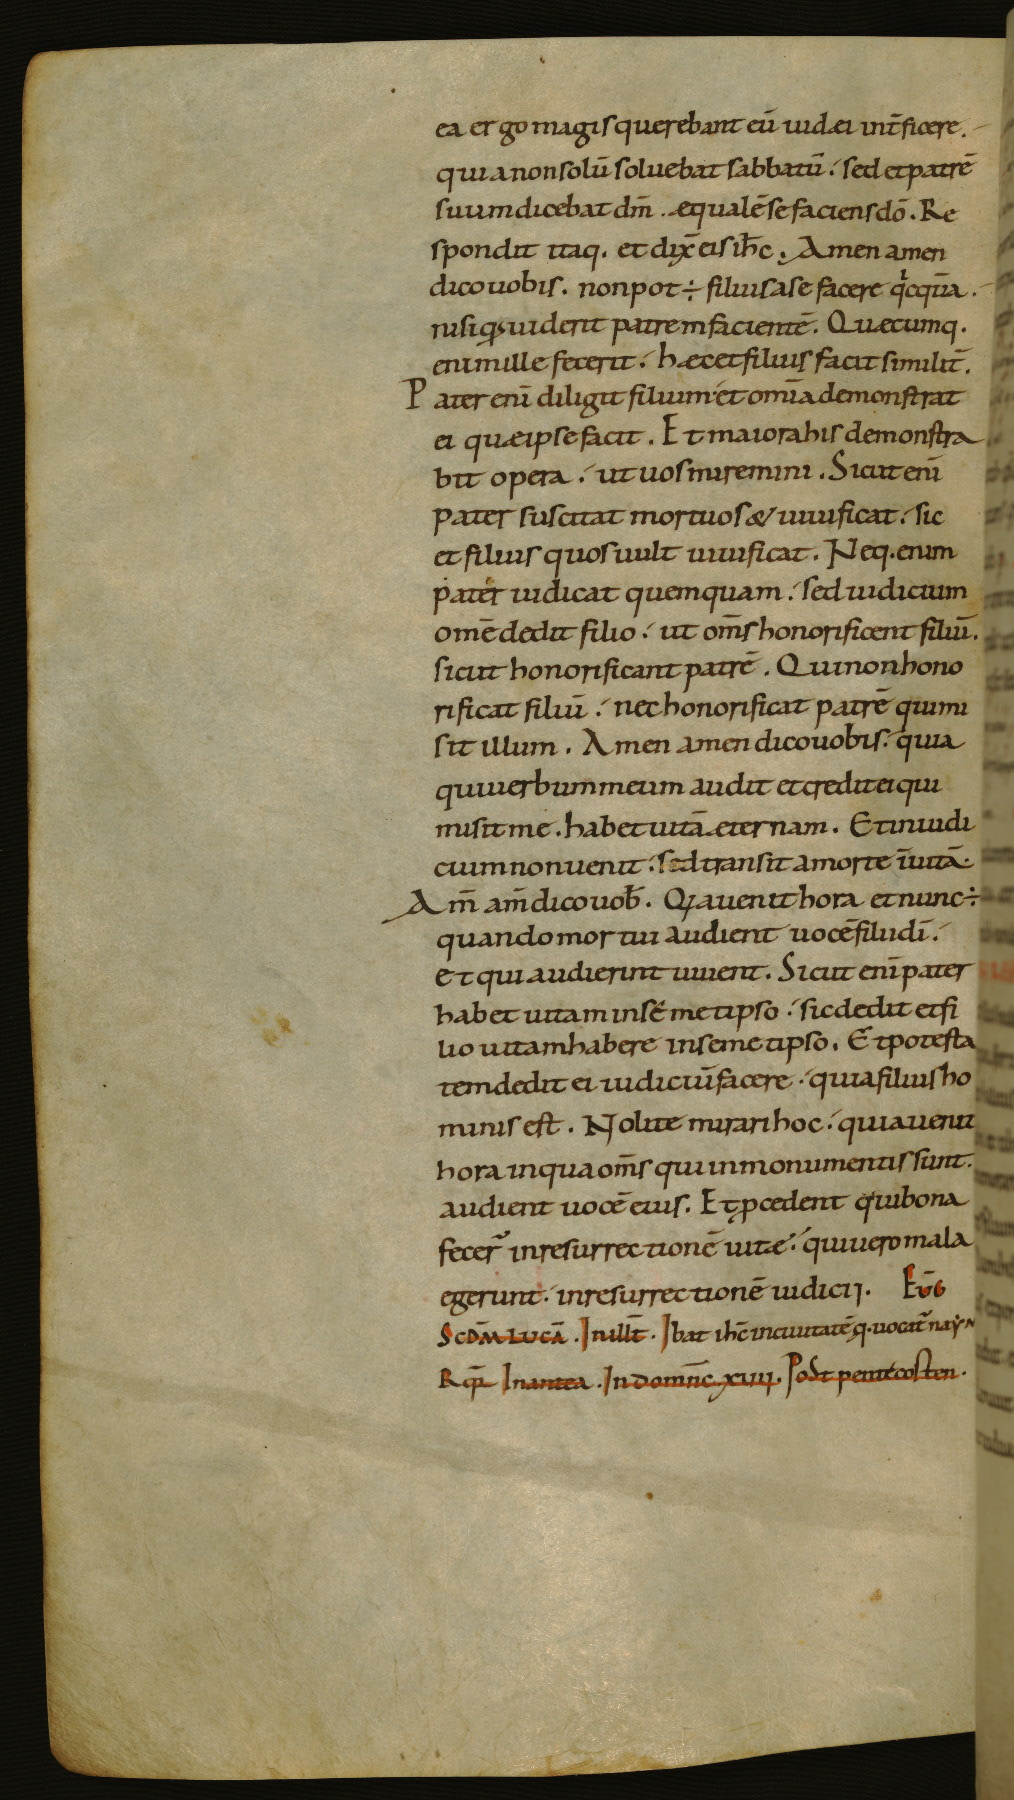 ea ergo magis querebant eū iudæi int̄ficere.
quia non solū soluebat sabbatū. sed et patrē
suum dicebat dm̄. æqualē se faciens dō. Re
spondit itaq. et dix̄ eis ih̄c. Amen amen
dico uobis. non pot ÷ filius a se facere qicquā.
nisi qd uiderit patrem facientē. Quæcumq.
enim ille fecerit. hæc et filius facit similit̄.
Pater enī diligit filium et omīa demonstrat
ei quæ ipse facit. Et maiora his demonstra
bit opera. ut uos miremini. Sicut enī
pater suscitat mortuos & uiuificat. sic
et filius quos uult uiuificat. Neq. enim
pater iudicat quemquam. sed iudicium
omē dedit filio. ut om̄s honorificent filiū.
sicut honorificant patrē. Qui non hono
rificat filiū. nec honorificat patrē qui mi
sit illum. Amen amen dico uobis. quia
qui uerbum meum audit et credit ei qui
misit me. habet uitā æternam. Et in iudi
cium non uenit. sed transit a morte ī uitā.
Am̄ am̄ dico uob̄. Qia uenit hora et nunc ÷
quando mortui audient uocē filii dī.
et qui audierint uiuent. Sicut enī pater
habet uitam in semetipso. sic dedit et fi
lio uitam habere in semetipso. Et potesta
tem dedit ei iudiciū facere. quia filius ho
minis est. Nolite mirari hoc. quia uenit
hora in qua om̄s qui in monumentis sunt.
audient uocē eius. Et pcedent qui bona
fecer̄ in resurrectionē uitæ. qui uero mala
egerunt. in resurrectionē iudicij. Eūg
Scdm̄ Lucā. In ill t̄. Ibat ih̄c in ciuitatē q. uocat̄ nayM
Rqr̄ In antea. In domn̄c. xuıı. Post pentecosten.